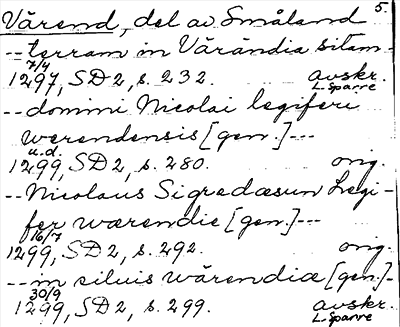 Värend, del av Småland 5.
-- terram in Värändia sitam --
7/4
1297, SD 2, s. 232. avskr.
L. Sparre
-- domini Nicolai legiferi
werendensis [gen.] ---
u.d.
1299, SD 2, s. 280. orig.
-- Nicolaus Sigredæsun Legi-
fer wærendie [gen.] ---
16/7
1299, SD 2, s. 292. orig.
-- in siluis wärendiæ [gen.] --
30/9
1299, SD 2, s. 299. avskr.
L. Sparre